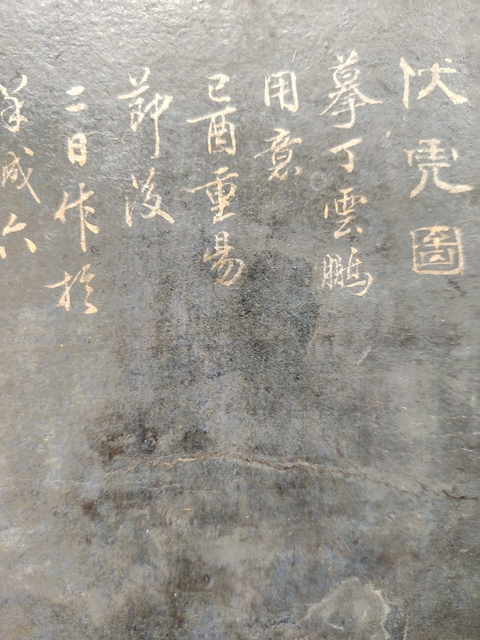 伏虎圖
摹丁雲鵬
用意
己酉重昜
節後
二日作於
羊城六